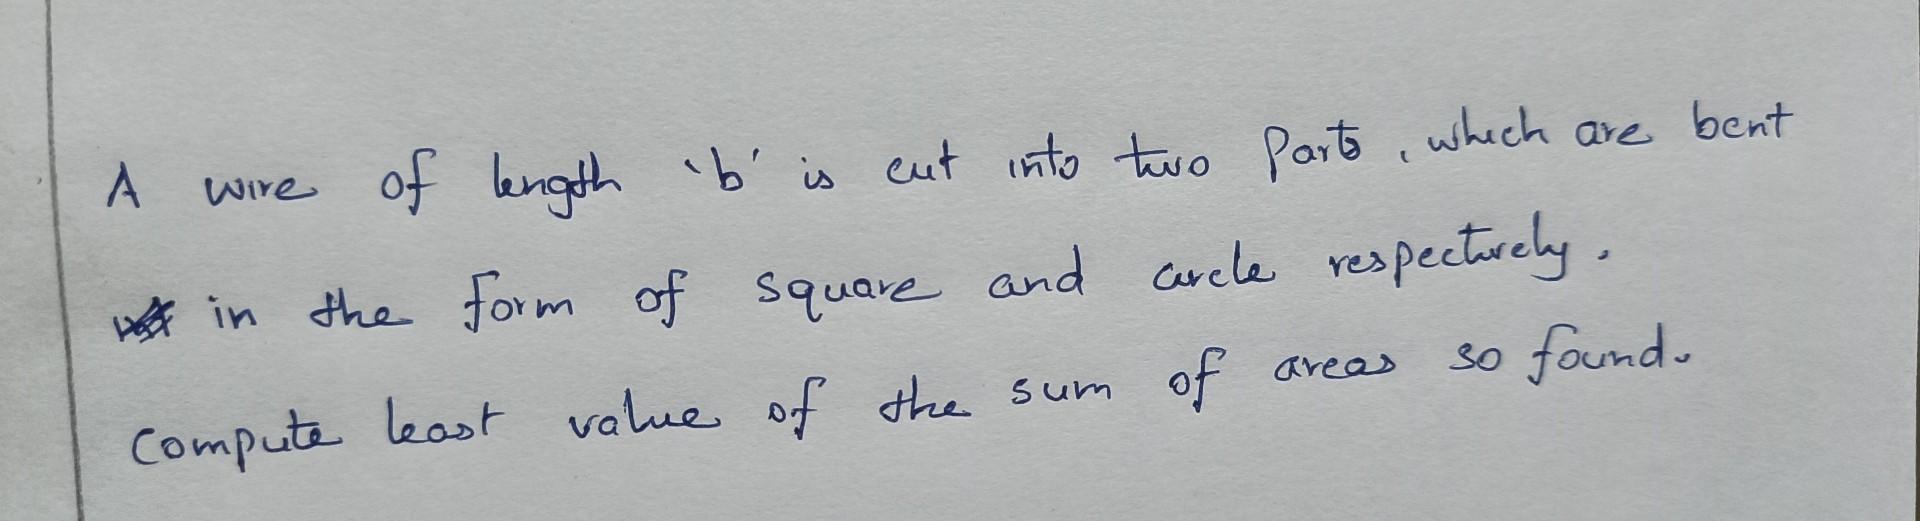 A wire of length 'b' is cut into two Parts, which are bent
in the form of square and circle respectively.
Compute least value of the sum of areas so found.